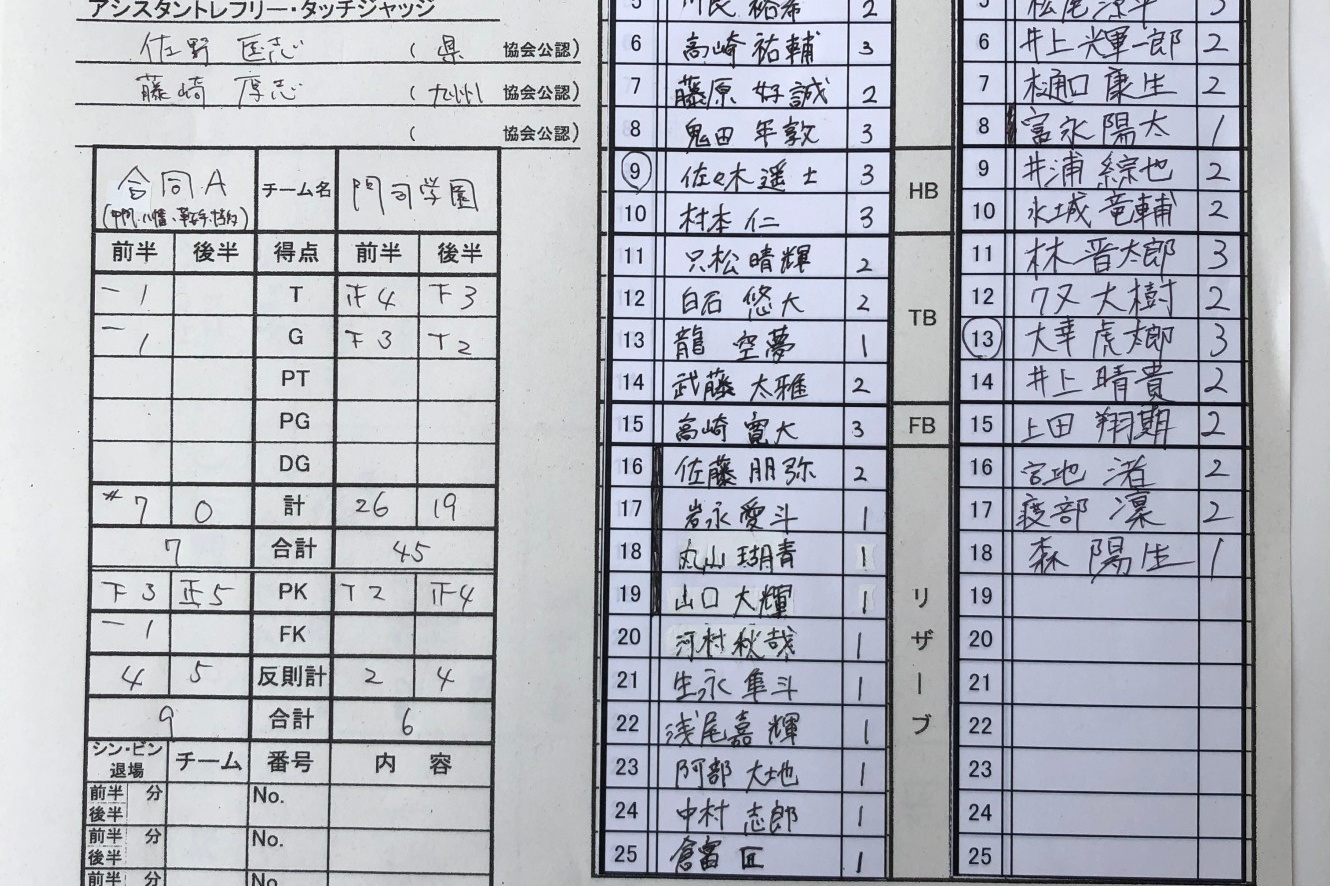 アシスタントレフリー・タッチジャッジ
佐野 匡志 ( 県 協会公認)
藤崎 厚志 ( 九州 協会公認)
( 協会公認)
合同A チーム名 門司学園
前半 後半 得点 前半 後半
一 1 T 正4 下3
一 1 G 下3 T2
PT
PG
DG
*7 0 計 26 19
7 合計 45
下3 正5 PK T2 正4
一1 FK
4 5 反則計 2 4
9 合計 6
シン・ビン 退場 チーム 番号 内 容
前半 分 No.
後半
前半 分 No.
後半
前半 分 No.
5 2
6 高崎 祐輔 3
7 藤原 好誠 2
8 鬼田 年敦 3
9 佐々木 遥士 3
10 村本 仁 3
11 只松 晴輝 2
12 白石 悠大 2
13 龍 空夢 1
14 武藤 太雅 2
15 高崎 寛大 3
16 佐藤 朋弥 2
17 岩永 愛斗 1
18 丸山 瑚青 1
19 山口 大輝 1
20 河村 秋哉 1
21 生永 隼斗 1
22 浅尾 嘉輝 1
23 阿部 大地 1
24 中村 志郎 1
25 倉富 匠 1
HB
TB
FB
リザーブ
5 松尾 涼平 3
6 井上 光軍一郎 2
7 樋口 康生 2
8 富永 陽太 1
9 井浦 綜也 2
10 水城 竜輔 2
11 林 晋太郎 3
12 大樹 2
13 虎太郎 3
14 井上 晴貴 2
15 上田 翔期 2
16 宮地 渚 2
17 渡部 凛 2
18 森 陽生 1
19
20
21
22
23
24
25